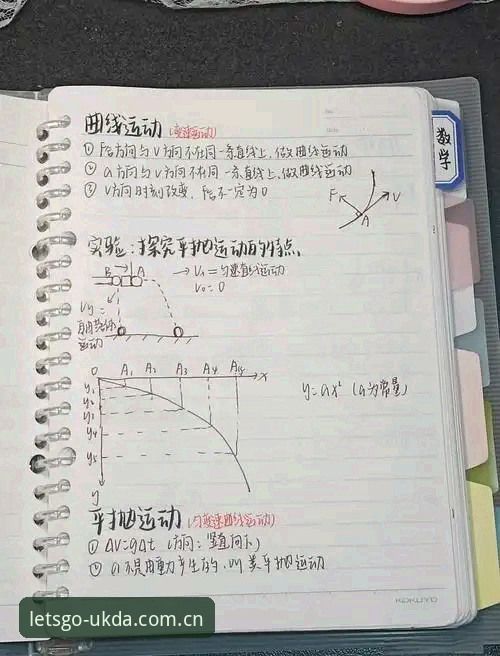 曲线运动(变速运动)
① F合方向与V方向不在同一条直线上,做曲线运动
② a方向与V方向不在同一条直线上,做曲线运动
③ V方向时刻改变,F合不一定为0
F V
A
数学
实验:探究平抛运动的特点
B A
→ Vx=匀速直线运动
V0=0
Vy=
自由落体
运动
O A1 A2 A3 A4 A5 x
y1
y2
y3
y4
y5
y
y=ax² (a为常量)
平抛运动(匀变速曲线运动)
① ΔV=gΔt (方向:竖直向下)
② a不是由重力产生的,叫类平抛运动
KOKUYO
letsgo-ukda.com.cn